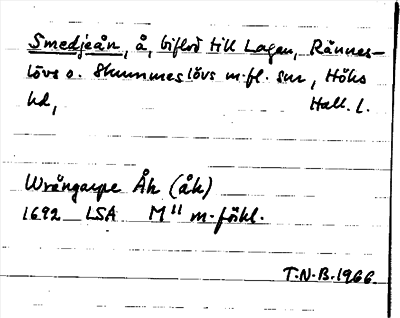 Smedjeån, å, biflod till Lagan, Rännes-
lövs o. Skummeslövs m.fl. snr, Höks
hd, Hall. l.
Wrångarpe Åh (åh)
1692 LSA M¹¹ m. förkl.
T.N.B. 1966